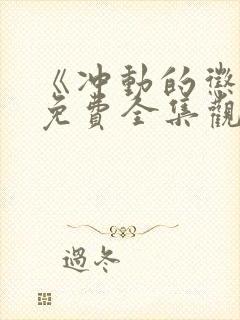 《冲動的懲
免費全集觀
過冬